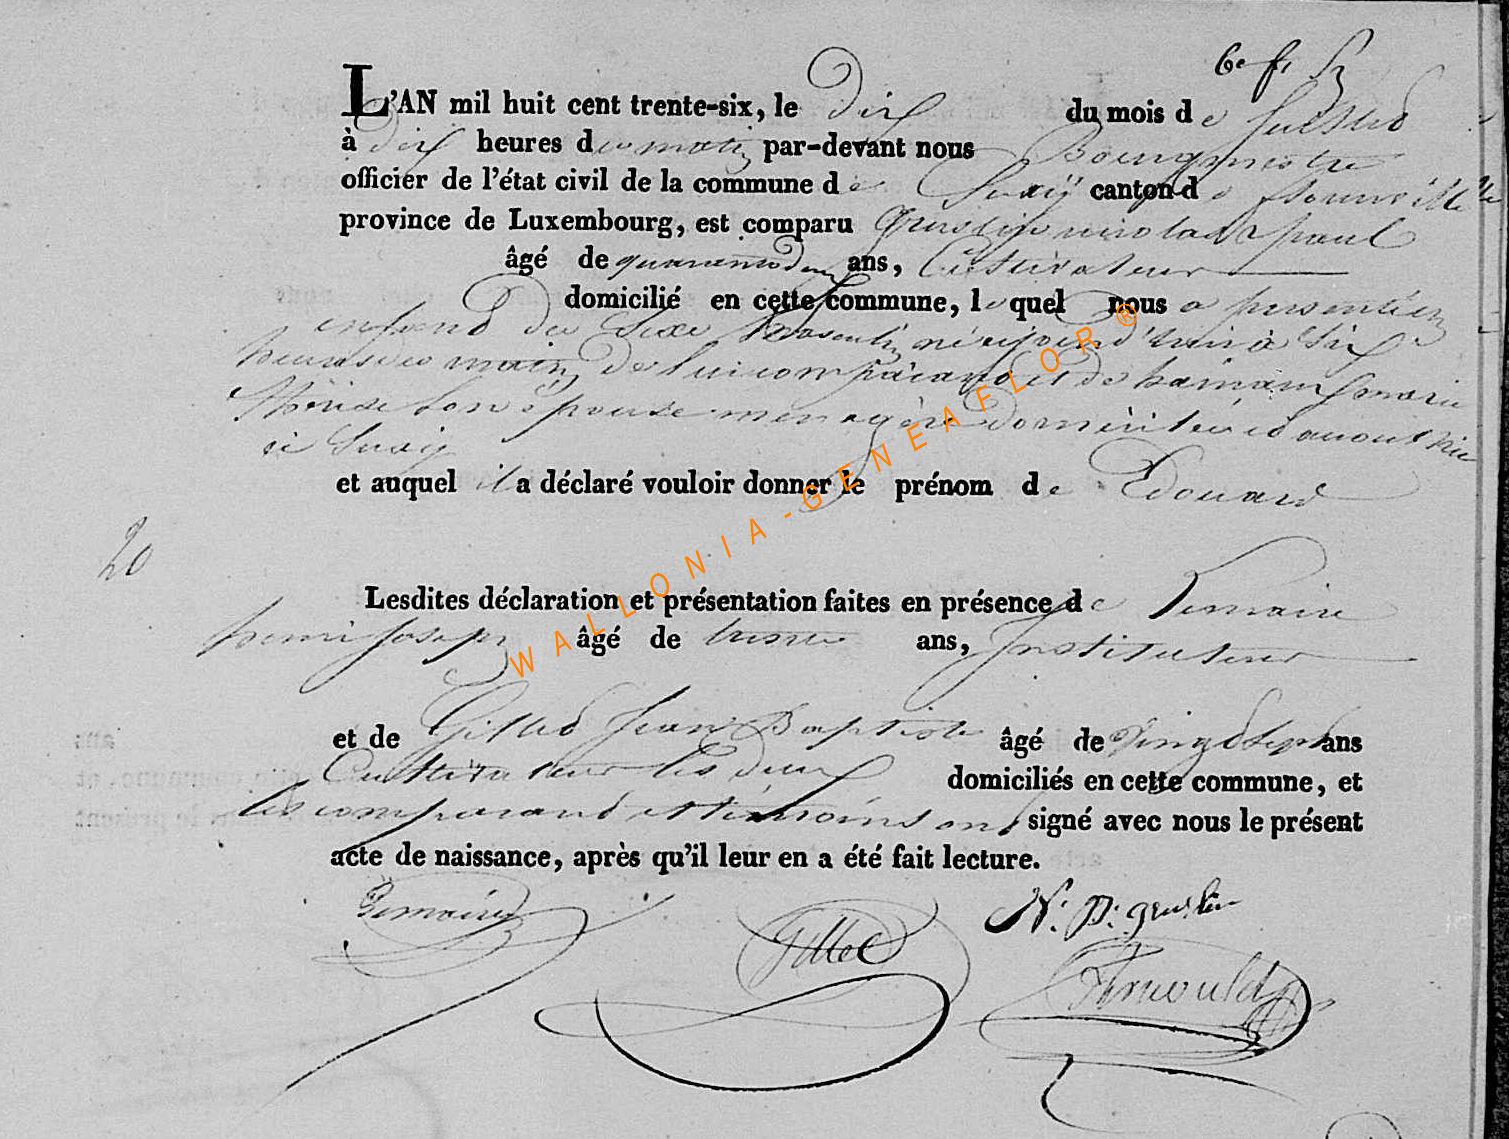 6e f. 
L'AN mil huit cent trente-six, le dix du mois de juillet
à dix heures du matin par-devant nous Bourgmestre
officier de l'état civil de la commune de Suxÿ canton de
province de Luxembourg, est comparu Grustin nicolas paul
âgé de quarante deux ans, Cultivateur
domicilié en cette commune, le quel nous a presenté un
enfant du Sexe Masculin né aujourd'hui à Six
heures du matin de lui comparant et de marie
Thérèse Son épouse menagère domiciliée avec lui
à Suxÿ
et auquel il a déclaré vouloir donner le prénom de Edouard
20
Lesdites déclaration et présentation faites en présence de Lemaire
henri joseph âgé de trente ans, Instituteur
et de Gilles Jean Baptiste âgé de vingt Sept ans
Cultivateur les deux domiciliés en cette commune, et
les comparant et témoins ont signé avec nous le présent
acte de naissance, après qu'il leur en a été fait lecture.
Lemaire Gilles N: P: grustin
Arnould
WALLONIA-GENEAFLOR ®